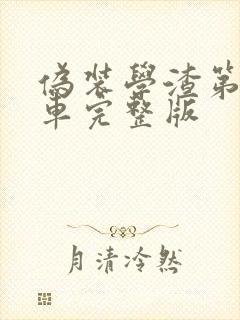 偽裝學渣第
車完整版
月清冷然